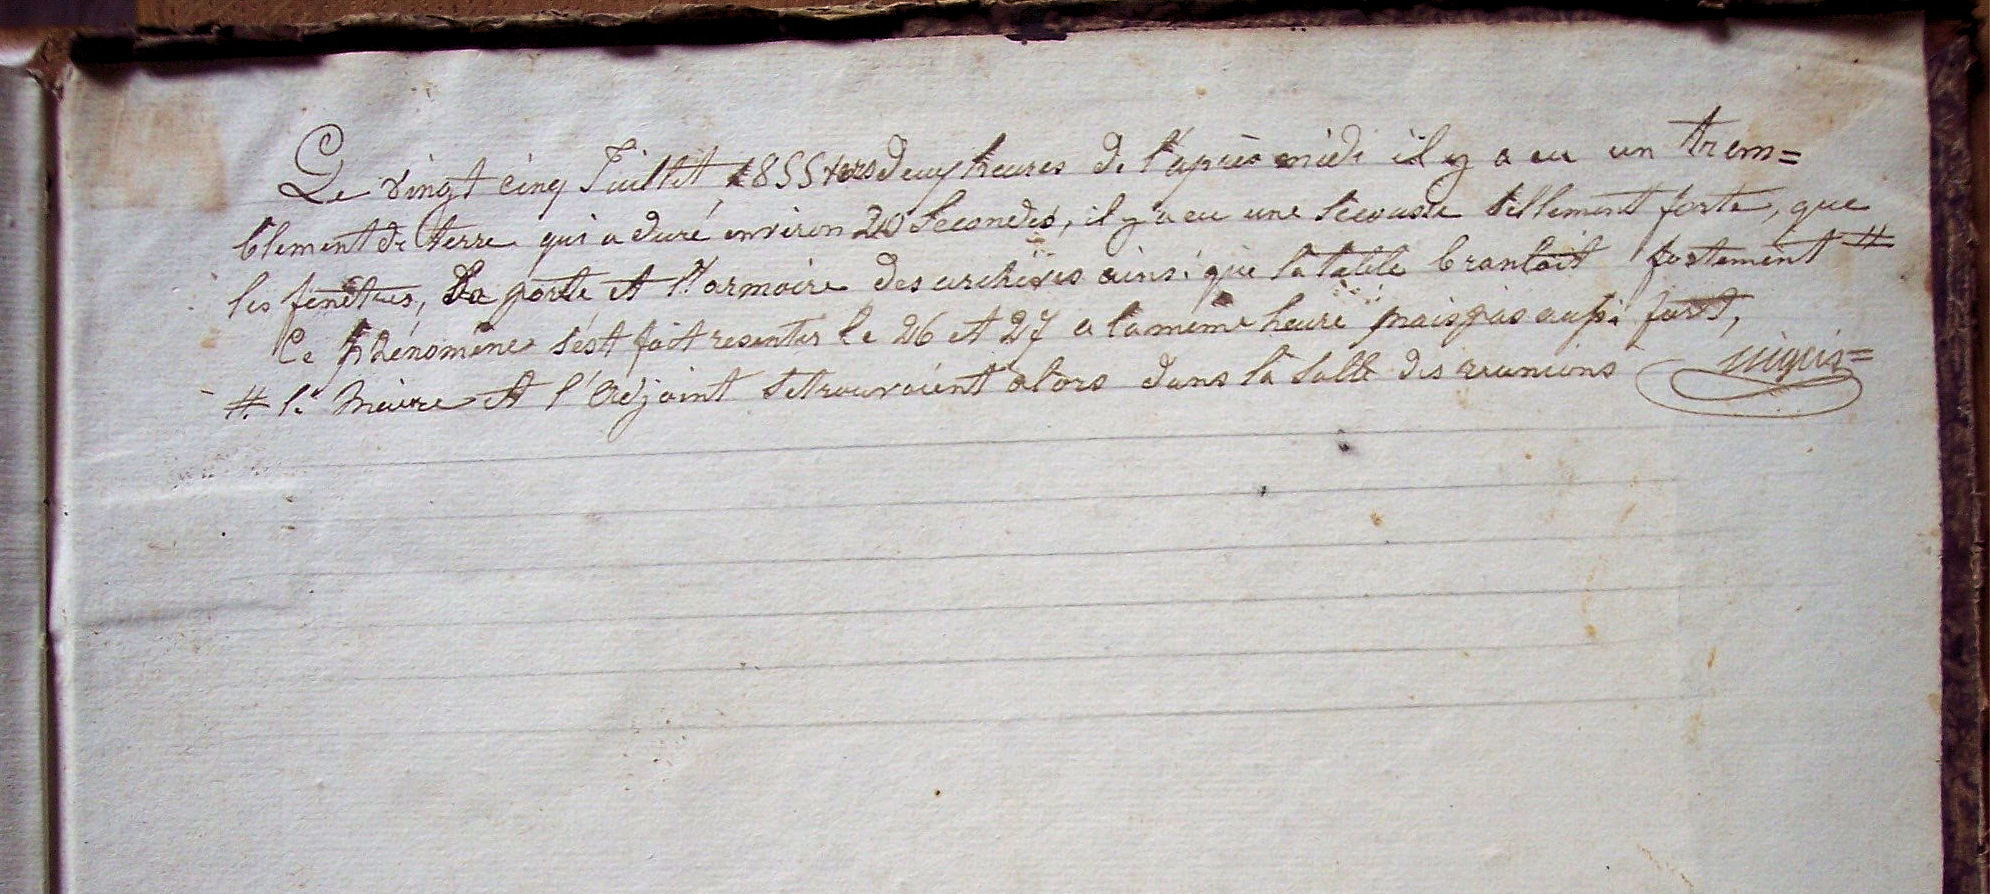 Le vingt cinq Juillet 1855 vers deux heures de l'après midi il y a eu un trem=
blement de terre qui a duré environ 20 Secondes, il y a eu une Secousse tellement forte, que
les fenêtres, La porte et l'armoire des archives ainsi que la table branloit fortement #
Ce phénomène s'est fait resentir le 26 et 27 a la même heure mais pas aussi fort,
# le Maire et l'adjoint se trouvoient alors dans la Salle des reunions